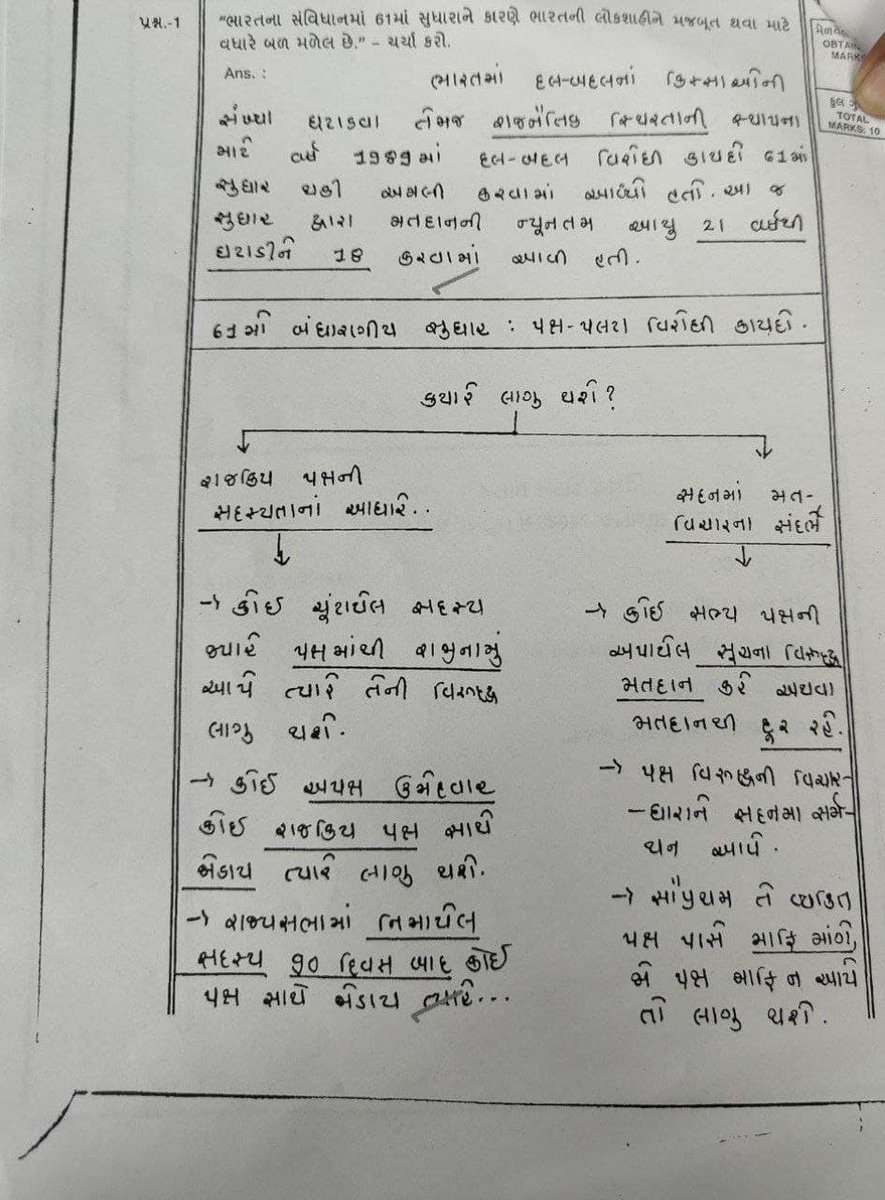 પ્રશ્ન.-1 "ભારતના સંવિધાનમાં 61માં સુધારાને કારણે ભારતની લોકશાહીને મજબૂત થવા માટે
વધારે બળ મળેલ છે." – ચર્ચા કરો.
OBTAI
MARKS
કુલ ગુ
TOTAL
MARKS: 10
Ans. :
ભારતમાં દલ-બદલનાં કિસ્સાઓની
સંખ્યા ઘટાડવા તેમજ રાજનૈતિક સ્થિરતાની સ્થાપના
માટે વર્ષ 1989માં દલ-બદલ વિરોધી કાયદો 61માં
સુધાર થકી અમલી કરવામાં આવ્યો હતો. આ જ
સુધાર દ્વારા મતદાનની ન્યૂનતમ આયુ 21 વર્ષથી
ઘટાડીને 18 કરવામાં આવી હતી.
61મો બંધારણીય સુધાર : પક્ષ-પલટા વિરોધી કાયદો.
કયારે લાગુ થશે?
રાજકિય પક્ષની
સદસ્યતાનાં આધારે..
→ કોઈ ચૂંટાયેલ સદસ્ય
જ્યારે પક્ષમાંથી રાજીનામું
આપે ત્યારે તેની વિરુદ્ધ
લાગુ થશે.
→ કોઈ અપક્ષ ઉમેદવાર
કોઈ રાજકિય પક્ષ સાથે
જોડાય ત્યારે લાગુ થશે.
→ રાજ્યસભામાં નિમાયેલ
સદસ્ય 90 દિવસ બાદ કોઈ
પક્ષ સાથે જોડાય ત્યારે...
સદનમાં મત-
વિચારના સંદર્ભે
→ કોઈ સભ્ય પક્ષની
અપાયેલ સૂચના વિરુદ્ધ
મતદાન કરે અથવા
મતદાનથી દૂર રહે.
→ પક્ષ વિરુદ્ધની વિચાર-
-ધારાને સદનમા સર્મ-
થન આપે.
→ સૌપ્રથમ તે વ્યકિત
પક્ષ પાસે માફિ માંગે,
જો પક્ષ માફિ ન આપે
તો લાગુ થશે.